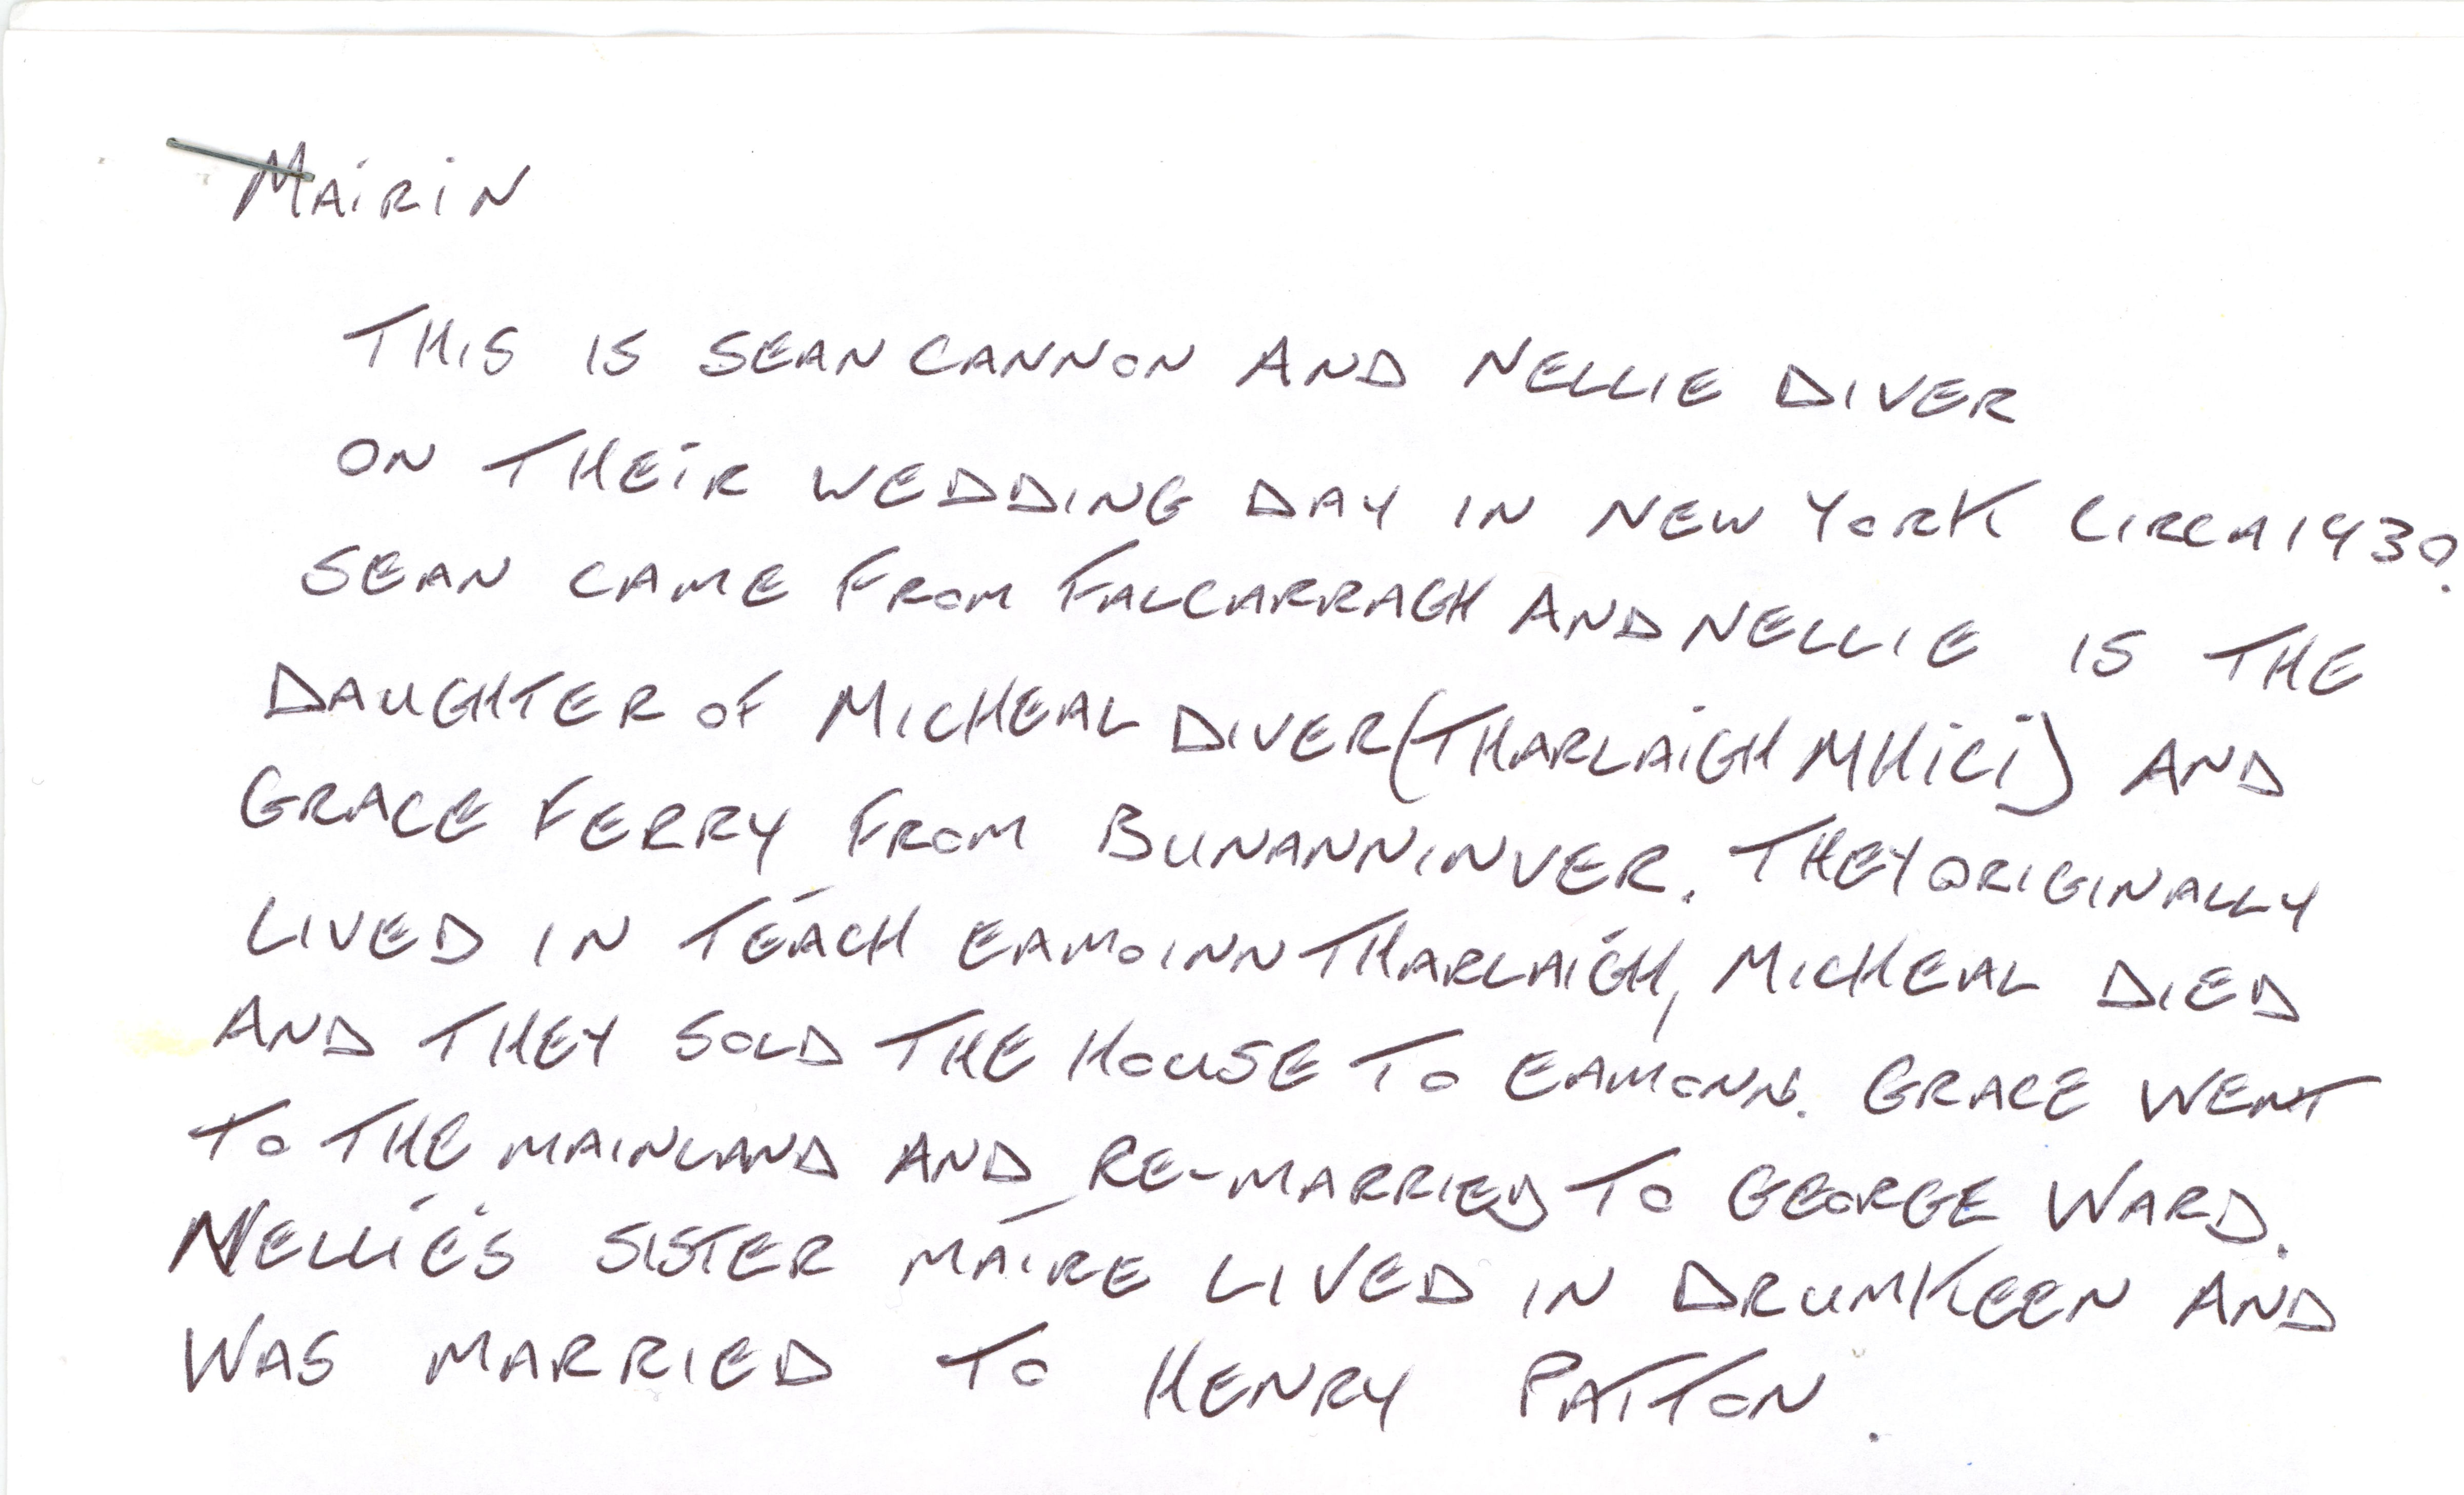 MAIRIN
THIS IS SEAN CANNON AND NELLIE DIVER
ON THEIR WEDDING DAY IN NEW YORK CIRCA 1930.
SEAN CAME FROM FALCARRAGH AND NELLIE IS THE
DAUGHTER OF MICHEAL DIVER (THARLAIGH MHICI) AND
GRACE FERRY FROM BUNANNINVER. THEY ORIGINALLY
LIVED IN TEÁCH EAMOINN THARLAIGH, MICHEAL DIED
AND THEY SOLD THE HOUSE TO EAMONN. GRACE WENT
TO THE MAINLAND AND RE-MARRIED TO GEORGE WARD.
NELLIE'S SISTER MÁIRE LIVED IN DRUMKEEN AND
WAS MARRIED TO HENRY PATTON.